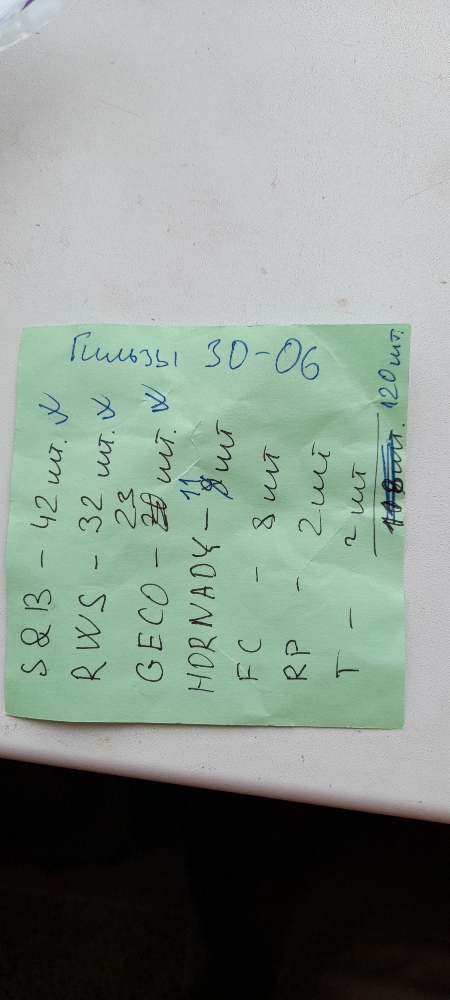 Гильзы 30-06
S&B - 42 шт.
RWS - 32 шт.
GECO - 23 шт.
HORNADY - 11 шт
FC - 8 шт
RP - 2 шт
T - 2 шт
120 шт.